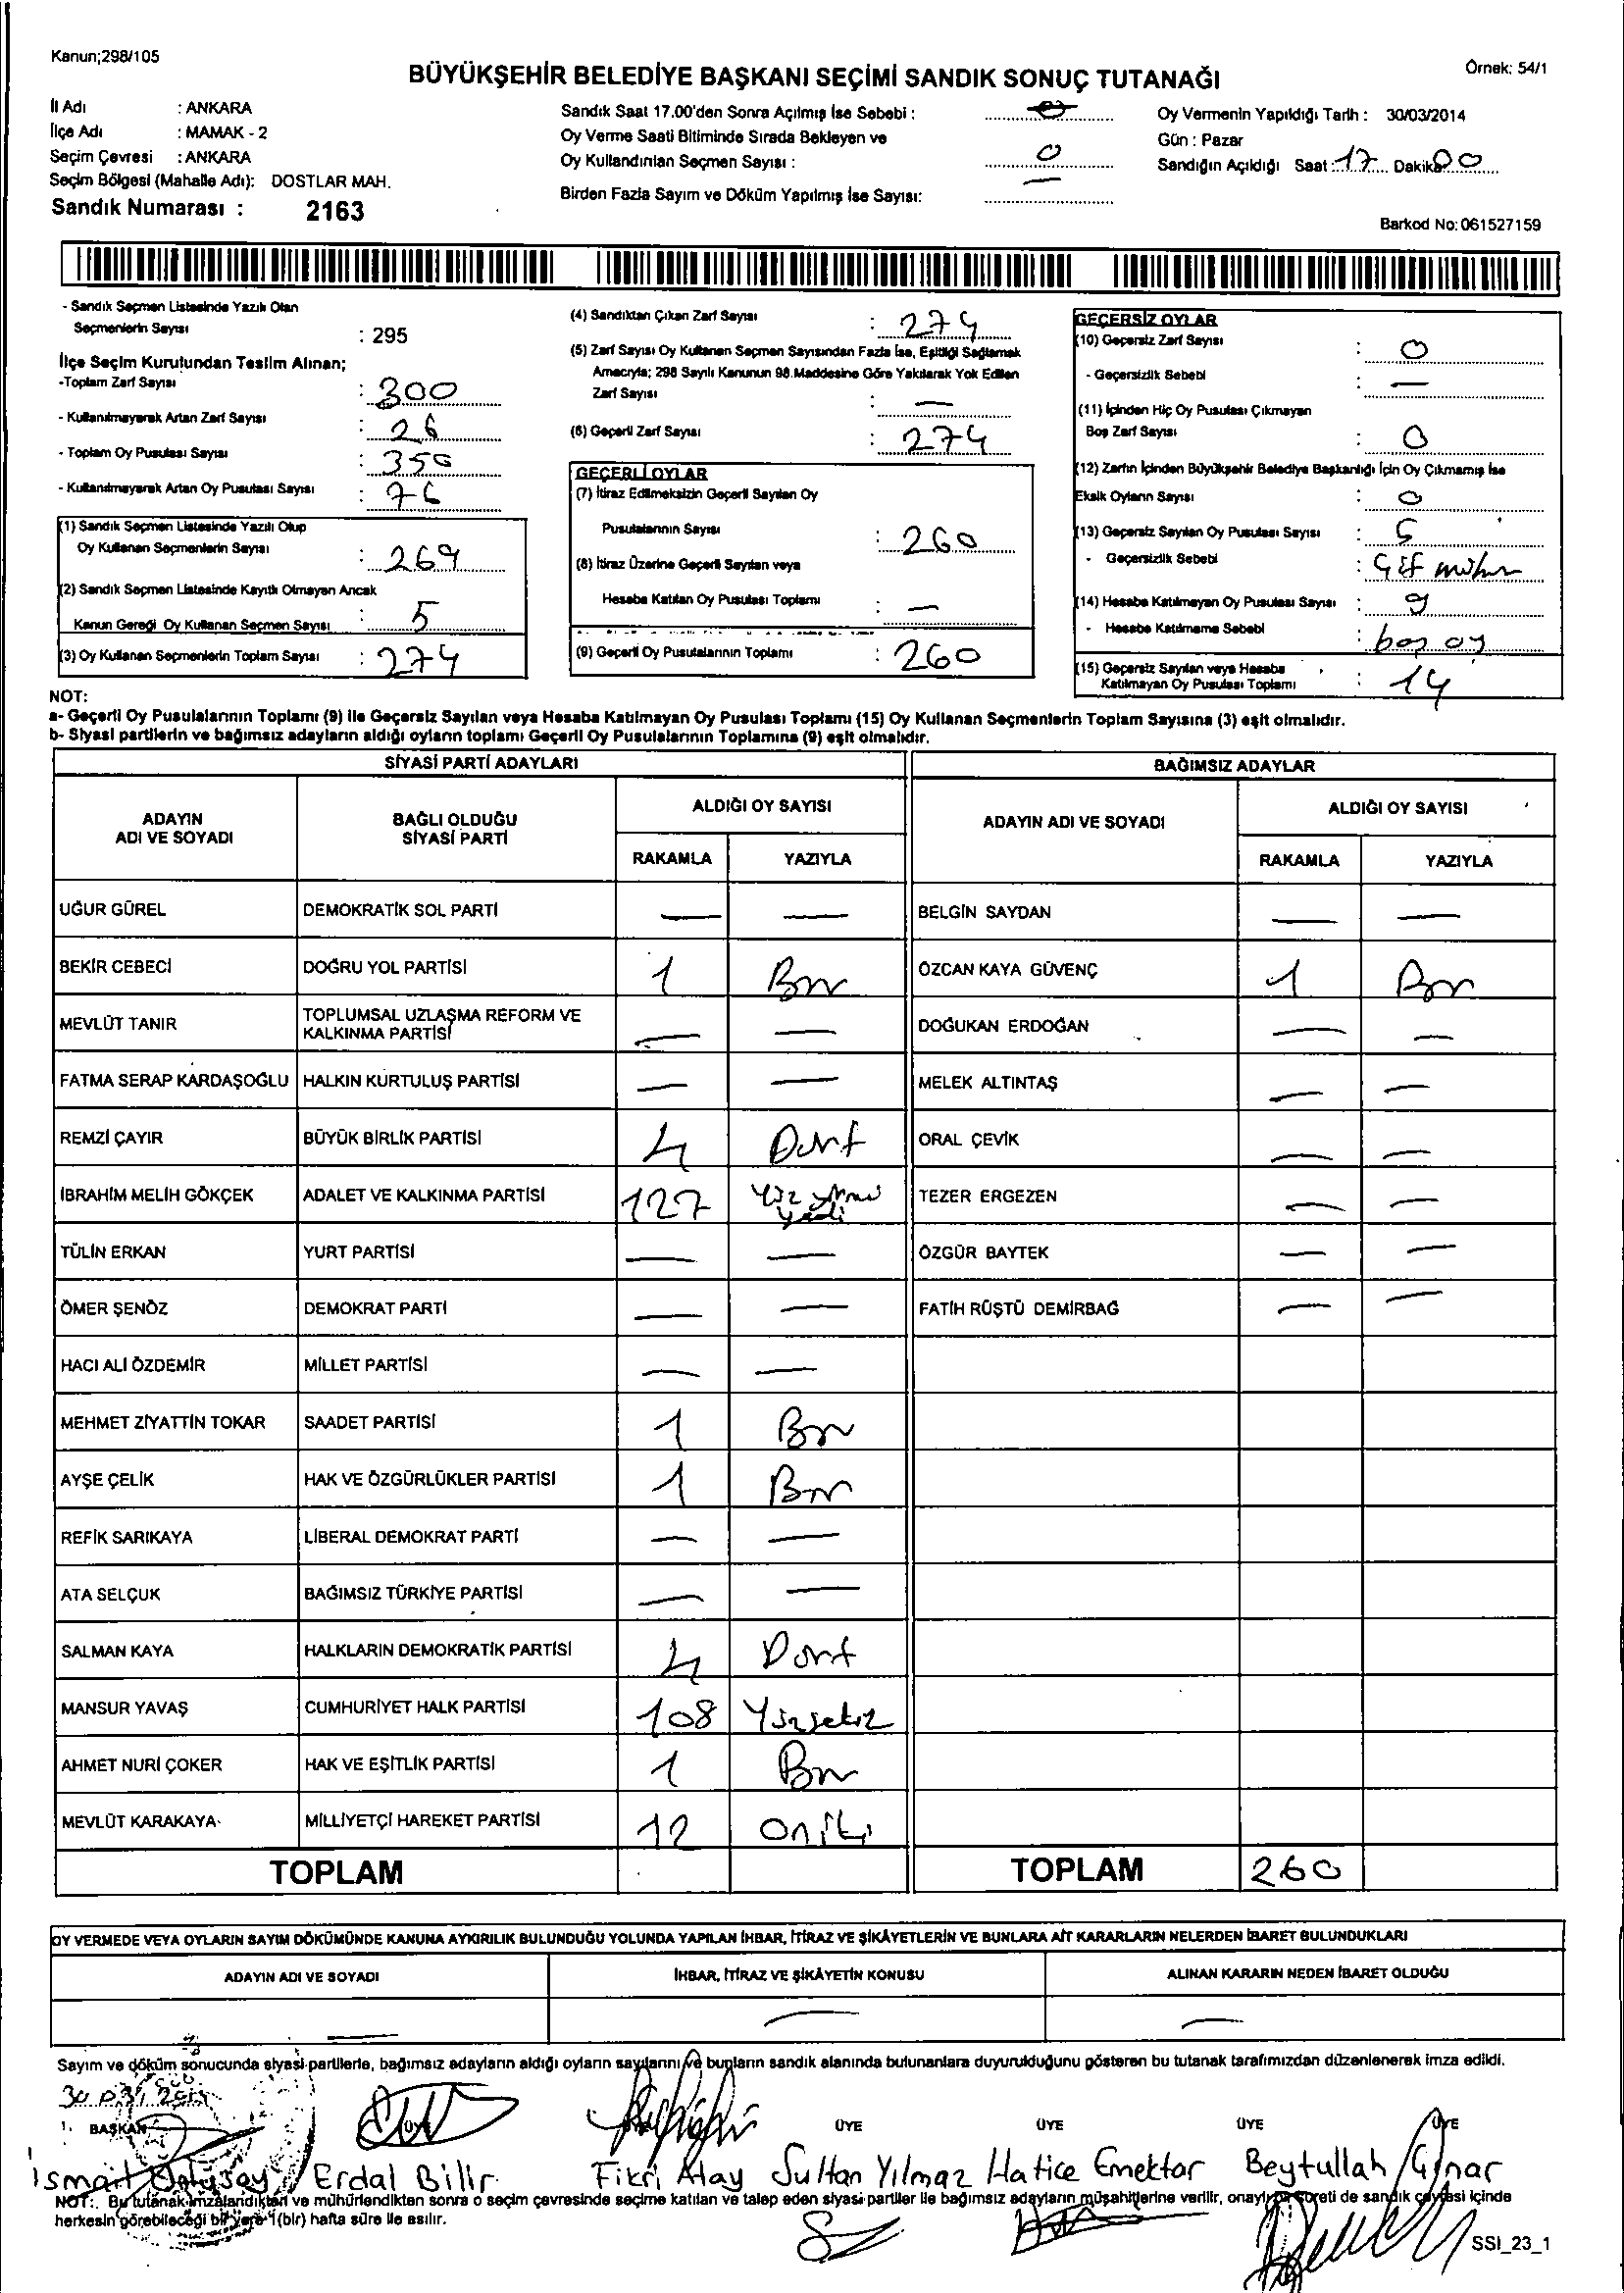 Kanun;298/105
BÜYÜKŞEHİR BELEDİYE BAŞKANI SEÇİMİ SANDIK SONUÇ TUTANAĞI
Örnek: 54/1
İl Adı : ANKARA
İlçe Adı : MAMAK - 2
Seçim Çevresi : ANKARA
Seçim Bölgesi (Mahalle Adı): DOSTLAR MAH.
Sandık Numarası : 2163
Sandık Saat 17.00'den Sonra Açılmış İse Sebebi :
Oy Verme Saati Bitiminde Sırada Bekleyen ve
Oy Kullandırılan Seçmen Sayısı : 0
Birden Fazla Sayım ve Döküm Yapılmış İse Sayısı: —
Oy Vermenin Yapıldığı Tarih : 30/03/2014
Gün : Pazar
Sandığın Açıldığı Saat : 17 Dakika 00
Barkod No: 061527159
- Sandık Seçmen Listesinde Yazılı Olan
Seçmenlerin Sayısı : 295
İlçe Seçim Kurulundan Teslim Alınan;
-Toplam Zarf Sayısı : 300
- Kullanılmayarak Artan Zarf Sayısı : 26
- Toplam Oy Pusulası Sayısı : 350
- Kullanılmayarak Artan Oy Pusulası Sayısı : 76
(1) Sandık Seçmen Listesinde Yazılı Olup
Oy Kullanan Seçmenlerin Sayısı : 269
(2) Sandık Seçmen Listesinde Kayıtlı Olmayan Ancak
Kanun Gereği Oy Kullanan Seçmen Sayısı : 5
(3) Oy Kullanan Seçmenlerin Toplam Sayısı : 274
(4) Sandıktan Çıkan Zarf Sayısı : 274
(5) Zarf Sayısı Oy Kullanan Seçmen Sayısından Fazla İse, Eşitliği Sağlamak
Amacıyla; 298 Sayılı Kanunun 98.Maddesine Göre Yakılarak Yok Edilen
Zarf Sayısı : —
(6) Geçerli Zarf Sayısı : 274
GEÇERLİ OYLAR
(7) İtiraz Edilmeksizin Geçerli Sayılan Oy
Pusulalarının Sayısı : 260
(8) İtiraz Üzerine Geçerli Sayılan veya
Hesaba Katılan Oy Pusulası Toplamı : —
(9) Geçerli Oy Pusulalarının Toplamı : 260
GEÇERSİZ OYLAR
(10) Geçersiz Zarf Sayısı : 0
- Geçersizlik Sebebi : —
(11) İçinden Hiç Oy Pusulası Çıkmayan
Boş Zarf Sayısı : 0
(12) Zarfın İçinden Büyükşehir Belediye Başkanlığı İçin Oy Çıkmamış İse
Eksik Oyların Sayısı : 0
(13) Geçersiz Sayılan Oy Pusulası Sayısı : 5
- Geçersizlik Sebebi : Çift mühür
(14) Hesaba Katılmayan Oy Pusulası Sayısı : 9
- Hesaba Katılmama Sebebi : boş oy
(15) Geçersiz Sayılan veya Hesaba
Katılmayan Oy Pusulası Toplamı : 14
NOT:
a- Geçerli Oy Pusulalarının Toplamı (9) ile Geçersiz Sayılan veya Hesaba Katılmayan Oy Pusulası Toplamı (15) Oy Kullanan Seçmenlerin Toplam Sayısına (3) eşit olmalıdır.
b- Siyasi partilerin ve bağımsız adayların aldığı oyların toplamı Geçerli Oy Pusulalarının Toplamına (9) eşit olmalıdır.
SİYASİ PARTİ ADAYLARI
BAĞIMSIZ ADAYLAR
ADAYIN ADI VE SOYADI
BAĞLI OLDUĞU SİYASİ PARTİ
ALDIĞI OY SAYISI
RAKAMLA YAZIYLA
ADAYIN ADI VE SOYADI
ALDIĞI OY SAYISI
RAKAMLA YAZIYLA
UĞUR GÜREL DEMOKRATİK SOL PARTİ — — BELGİN SAYDAN — —
BEKİR CEBECİ DOĞRU YOL PARTİSİ 1 Bir ÖZCAN KAYA GÜVENÇ 1 Bir
MEVLÜT TANIR TOPLUMSAL UZLAŞMA REFORM VE KALKINMA PARTİSİ — — DOĞUKAN ERDOĞAN — —
FATMA SERAP KARDAŞOĞLU HALKIN KURTULUŞ PARTİSİ — — MELEK ALTINTAŞ — —
REMZİ ÇAYIR BÜYÜK BİRLİK PARTİSİ 4 Dört ORAL ÇEVİK — —
İBRAHİM MELİH GÖKÇEK ADALET VE KALKINMA PARTİSİ 127 Yüz yirmi yedi TEZER ERGEZEN — —
TÜLİN ERKAN YURT PARTİSİ — — ÖZGÜR BAYTEK — —
ÖMER ŞENÖZ DEMOKRAT PARTİ — — FATİH RÜŞTÜ DEMİRBAĞ — —
HACI ALİ ÖZDEMİR MİLLET PARTİSİ — —
MEHMET ZİYATTİN TOKAR SAADET PARTİSİ 1 Bir
AYŞE ÇELİK HAK VE ÖZGÜRLÜKLER PARTİSİ 1 Bir
REFİK SARIKAYA LİBERAL DEMOKRAT PARTİ — —
ATA SELÇUK BAĞIMSIZ TÜRKİYE PARTİSİ — —
SALMAN KAYA HALKLARIN DEMOKRATİK PARTİSİ 4 Dört
MANSUR YAVAŞ CUMHURİYET HALK PARTİSİ 108 Yüzsekiz
AHMET NURİ ÇOKER HAK VE EŞİTLİK PARTİSİ 1 Bir
MEVLÜT KARAKAYA MİLLİYETÇİ HAREKET PARTİSİ 12 Oniki
TOPLAM TOPLAM 260
OY VERMEDE VEYA OYLARIN SAYIM DÖKÜMÜNDE KANUNA AYKIRILIK BULUNDUĞU YOLUNDA YAPILAN İHBAR, İTİRAZ VE ŞİKÂYETLERİN VE BUNLARA AİT KARARLARIN NELERDEN İBARET BULUNDUKLARI
ADAYIN ADI VE SOYADI İHBAR, İTİRAZ VE ŞİKÂYETİN KONUSU ALINAN KARARIN NEDEN İBARET OLDUĞU
— — —
Sayım ve döküm sonucunda siyasi partilerle, bağımsız adayların aldığı oyların sayılarını ve bunların sandık alanında bulunanlara duyurulduğunu gösteren bu tutanak tarafımızdan düzenlenerek imza edildi.
30.03.2014
BAŞKAN ÜYE ÜYE ÜYE ÜYE ÜYE
İsmail Erdal Bilir Fikri Atay Sultan Yılmaz Hatice Emektar Beytullah Çınar
NOT: Bu tutanak imzalandıktan ve mühürlendikten sonra o seçim çevresinde seçime katılan ve talep eden siyasi partiler ile bağımsız adayların müşahitlerine verilir, onaylı bir sureti de sandık çevresi içinde
herkesin görebileceği bir yere 1(bir) hafta süre ile asılır.
SSI_23_1